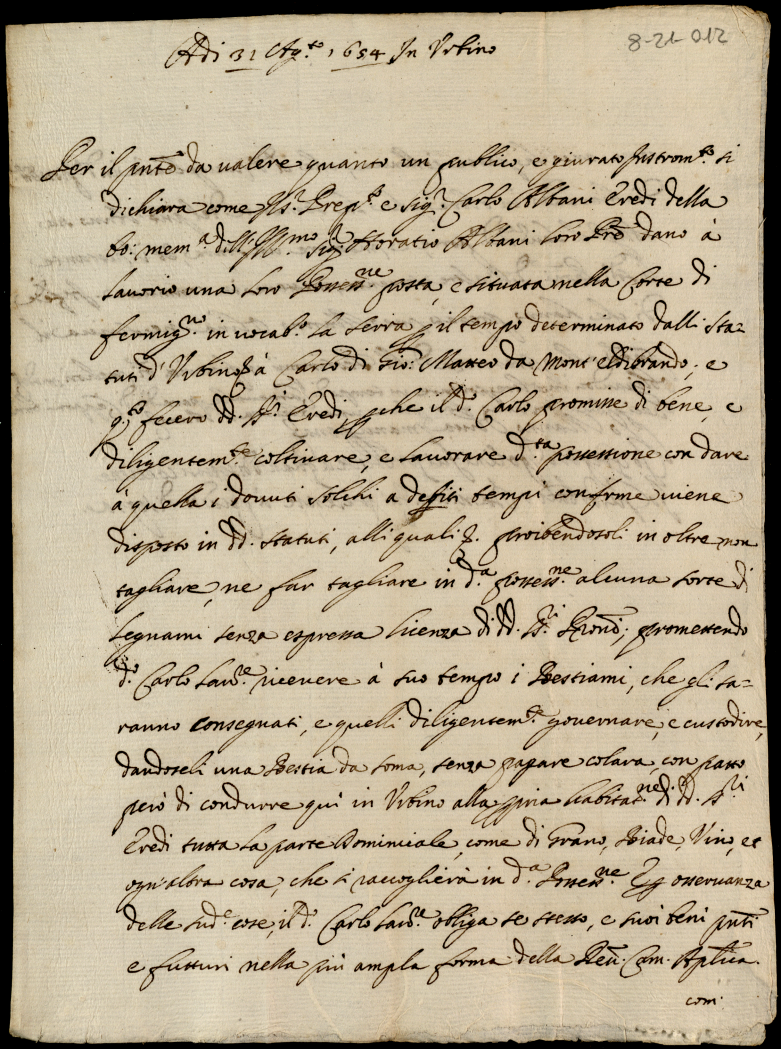 8-21-012
Adi 31 Ag.to 1654 In Urbino
Per il pnte da valere quanto un publico, e giurato Instrom.to si
dichiara come Ill.ri e Sig.r Carlo Albani Eredi della
bo: mem.a dell' Ill.mo Sig.r Horatio Albani loro Pre dano à
lavorio una loro Possess.ne posta, e situata nella Corte di
fermig.no in vocab.o la Serra p il tempo determinato dalli Sta-
tuti d'Urbino à Carlo di Gio: Matteo da Mont'eldibrando; e
q.to fecero dd. SS.ri Eredi, pche il d.o Carlo promisse di bene, e
diligentem.te coltivare, e lavorare d.ta possessione con dare
à quella i dovuti solchi a debiti tempi conforme viene
disposto in dd. Statuti, alli quali proibendosoli in oltre non
tagliare, ne far tagliare in d.a possess.ne alcuna sorte di
legnami senza espressa licenza di dd. SS.ri Proni; promettendo
d.o Carlo Lav.re ricevere à suo tempo i Bestiami, che gli sa-
ranno consegnati, e quelli diligentem.te governare, e custodire,
dandoseli una Bestia da soma, senza pagare colara, con patto
però di condurre quì in Urbino alla ppria habitat.ne di dd. SS.ri
Eredi tutta la parte Dominiale, come di Grano, Biade, Vino, et
ogn'altra cosa, che si raccoglierà in d.a Possess.ne E p osservanza
delle sud.e cose, il d.o Carlo Lav.re obliga se stesso, e suoi beni pnti
e futturi nella più ampla forma della Reu. Cam. Aplica.
com: